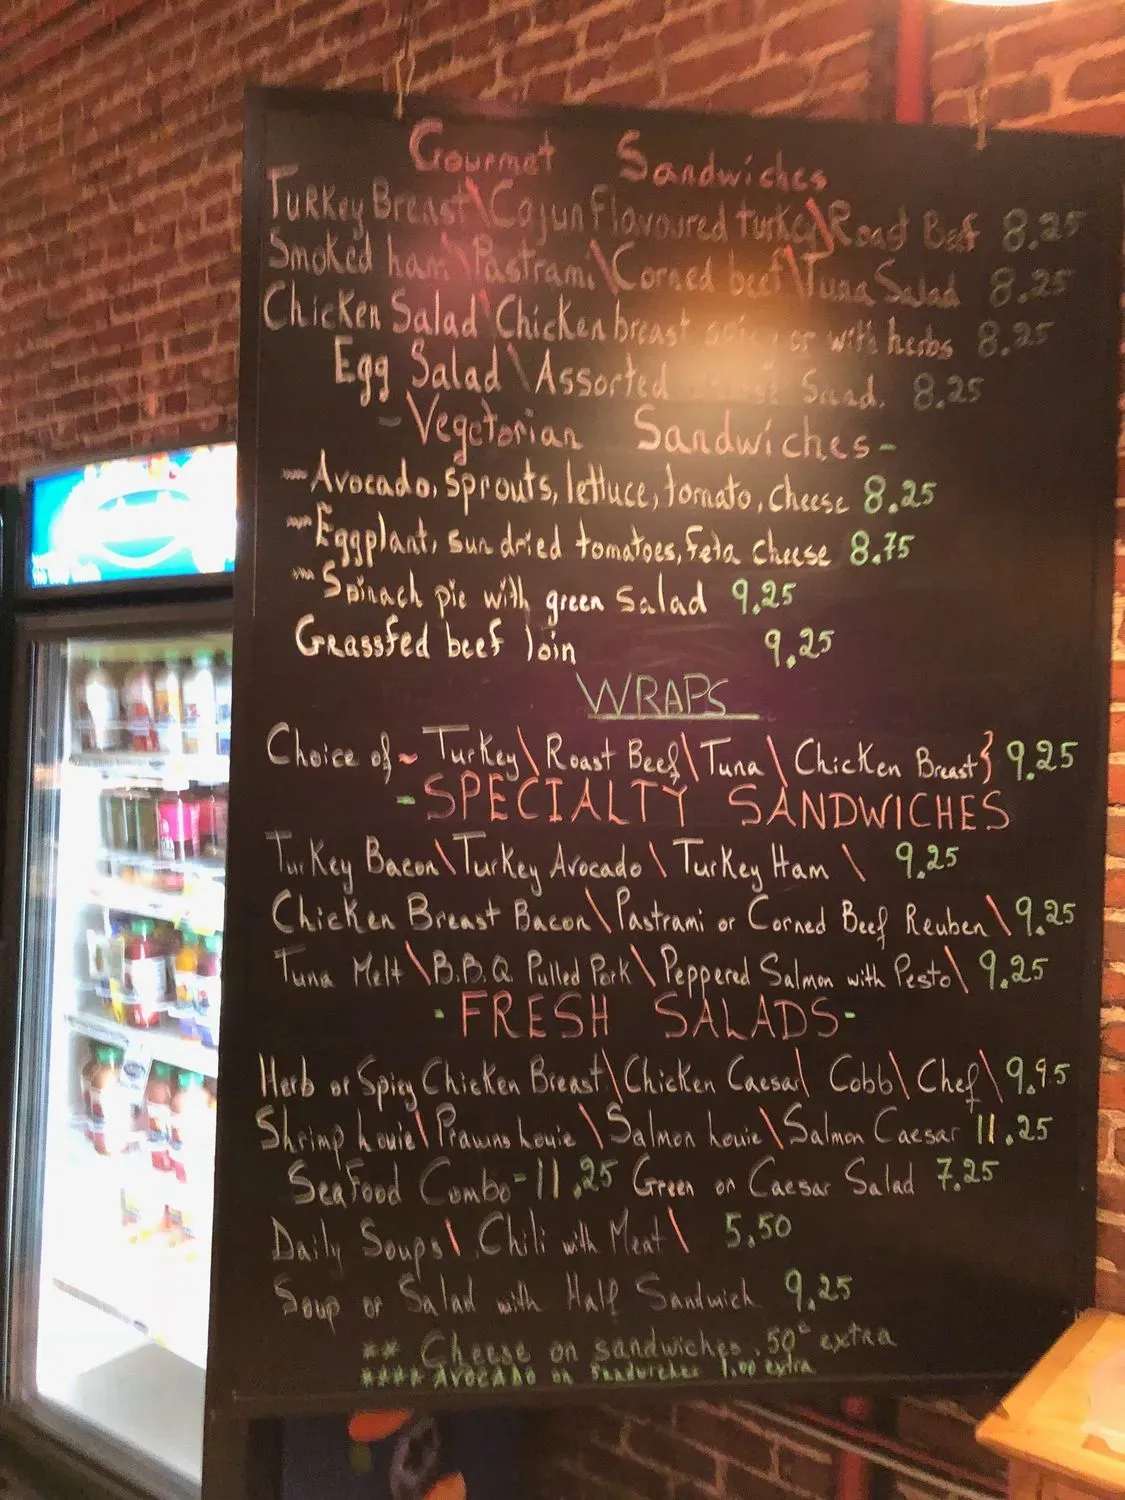 Gourmet Sandwiches
Turkey Breast\Cajun flavoured turkey\Roast Beef 8.25
Smoked ham\Pastrami\Corned beef\Tuna Salad 8.25
Chicken Salad\Chicken breast spicy or with herbs 8.25
Egg Salad\Assorted Sand. 8.25
- Vegetarian Sandwiches -
Avocado, sprouts, lettuce, tomato, cheese 8.25
Eggplant, sun dried tomatoes, feta cheese 8.75
Spinach pie with green salad 9.25
Grassfed beef loin 9.25
WRAPS
Choice of ~ Turkey\Roast Beef\Tuna\Chicken Breast} 9.25
- SPECIALTY SANDWICHES
Turkey Bacon\Turkey Avocado\Turkey Ham\ 9.25
Chicken Breast Bacon\Pastrami or Corned Beef Reuben\9.25
Tuna Melt\B.B.Q. Pulled Pork\Peppered Salmon with Pesto\9.25
- FRESH SALADS -
Herb or Spicy Chicken Breast\Chicken Caesar\Cobb\Chef\9.95
Shrimp Louie\Prawns Louie\Salmon Louie\Salmon Caesar 11.25
Seafood Combo - 11.25 Green or Caesar Salad 7.25
Daily Soups\Chili with Meat\ 5.50
Soup or Salad with Half Sandwich 9.25
** Cheese on sandwiches .50¢ extra
**** Avocado on sandwiches 1.00 extra